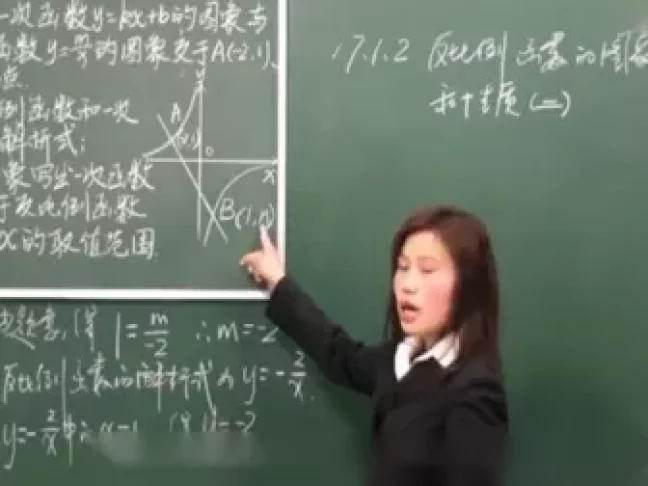 一次函数y=kx+b的图象与
函数y=m/x的图象交于A(-2,1)、
点
例函数和一次
解析式;
象写出一次函数
于反比例函数
x的取值范围
y
A
0
x
B(1,n)
17.1.2 反比例函数的图象
和性质(二)
由题意,得 1=m/-2 ∴m=-2
反比例函数的解析式为y=-2/x.
y=-2/x中